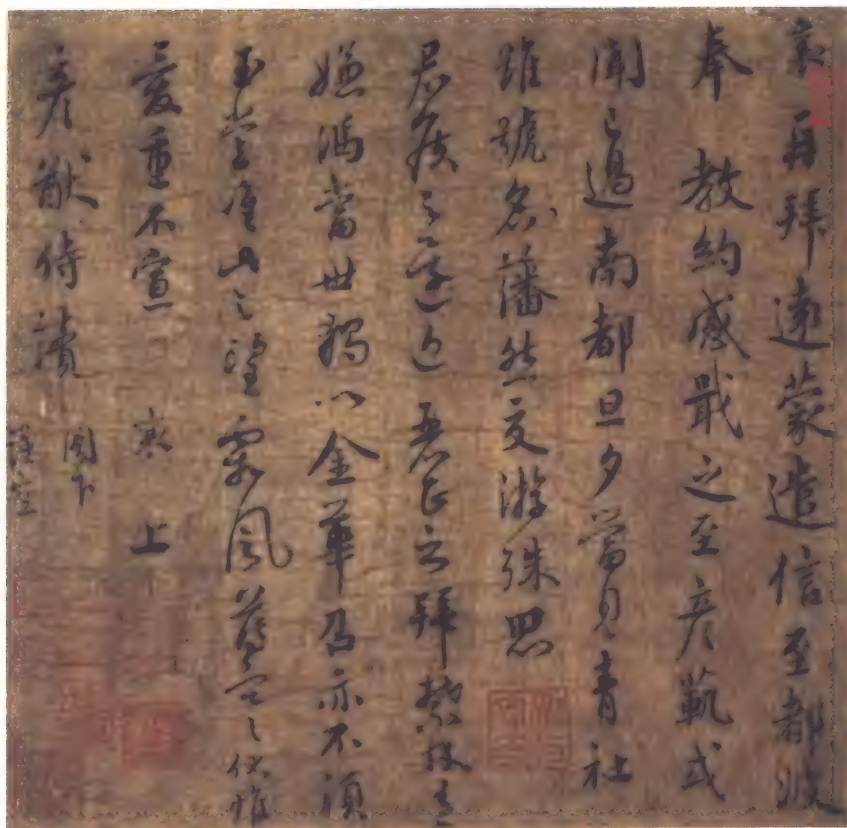 襄再拜遠蒙遣信至都波
奉 教約感戢之至彦範或
聞已過南都旦夕當見青社
雖號名藩然交游殊思
君侯之還近麗正之拜禁林有
嫌馮當世獨以金華召亦不須
玉堂唯此之望霜風薄寒伏惟
愛重不宣 襄上
彦猷侍讀 閣下
謹空